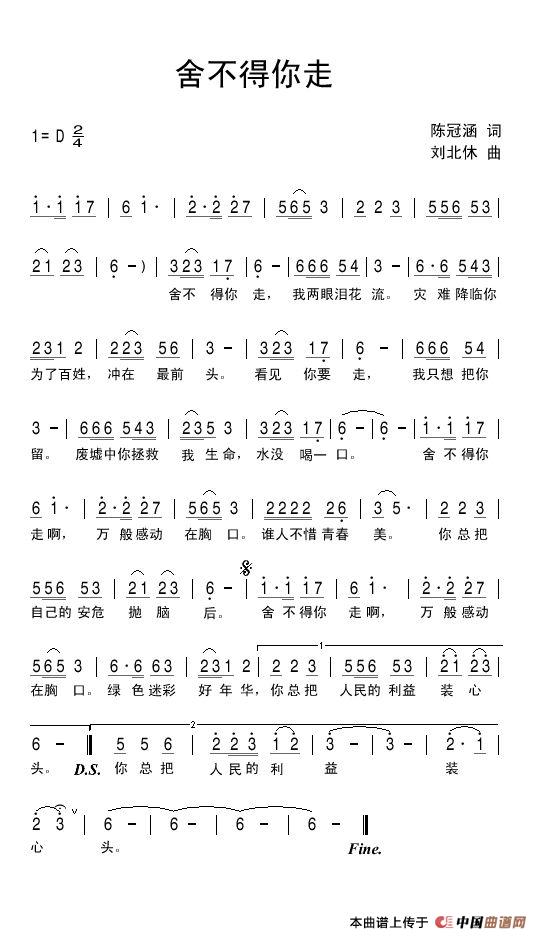 舍不得你走
1=D 2/4
陈冠涵 词
刘北休 曲
1·1 17 | 6 1· | 2·2 27 | 565 3 | 2 2 3 | 556 53 |
21 23 | 6 -) | 323 17 | 6 - | 666 54 | 3 - | 6·6 543 |
舍不 得你 走, 我两眼泪花 流。 灾 难 降临你
231 2 | 223 56 | 3 - | 323 17 | 6 - | 666 54 |
为了百姓, 冲在 最前 头。 看见 你要 走, 我只想 把你
3 - | 666 543 | 235 3 | 323 17 | 6 - | 6 - | 1·1 17 |
留。 废墟中你拯救 我 生命, 水没 喝一 口。 舍 不 得你
6 1· | 2·2 27 | 565 3 | 2222 26 | 3 5· | 2 2 3 |
走啊, 万 般感动 在胸 口。 谁人不惜 青春 美。 你 总 把
556 53 | 21 23 | 6 - | 1·1 17 | 6 1· | 2·2 27 |
自己的 安危 抛 脑 后。 舍 不 得你 走啊, 万 般感动
1
565 3 | 6·6 63 | 231 2 | 2 2 3 | 556 53 | 21 23 |
在胸 口。 绿 色 迷彩 好 年 华, 你总把 人民的 利益 装 心
2
6 - | 5 5 6 | 2 2 3 12 | 3 - | 3 - | 2· 1 |
头。 D.S. 你 总 把 人 民 的 利 益 装
2 3 | 6 - | 6 - | 6 - | 6 - |
心 头。 Fine.
本曲谱上传于 中国曲谱网